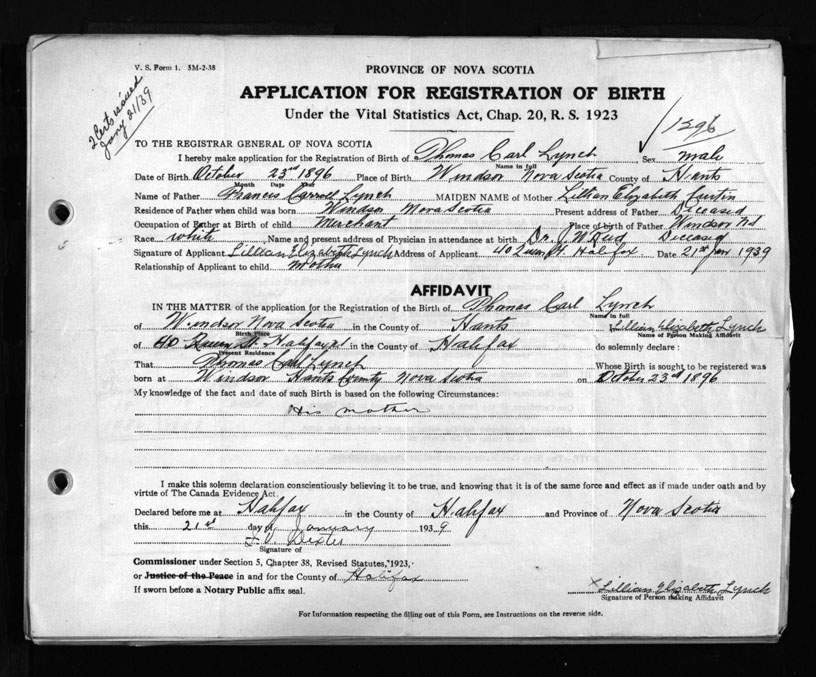 V. S. Form 1. 5M-2-38
2 Certs issued
Jany 21/39
PROVINCE OF NOVA SCOTIA
APPLICATION FOR REGISTRATION OF BIRTH
Under the Vital Statistics Act, Chap. 20, R. S. 1923
1896
TO THE REGISTRAR GENERAL OF NOVA SCOTIA
I hereby make application for the Registration of Birth of Thomas Carl Lynch Sex male
Name in full
Date of Birth October 23rd 1896 Place of Birth Windsor Nova Scotia County of Hants
Month Date Year
Name of Father Francis Carroll Lynch MAIDEN NAME of Mother Lillian Elizabeth Curtin
Residence of Father when child was born Windsor Nova Scotia Present address of Father Diceased
Occupation of Father at Birth of child Merchant Place of birth of Father Windsor
Race white Name and present address of Physician in attendance at birth Dr. J. W. Diceased
Signature of Applicant Lillian Elizabeth Lynch Address of Applicant 40 Queen St. Halifax Date 21st Jan 1939
Relationship of Applicant to child Mother
AFFIDAVIT
IN THE MATTER of the application for the Registration of the Birth of Thomas Carl Lynch
Name in full
of Windsor Nova Scotia in the County of Hants I, Lillian Elizabeth Lynch
Birth Place Name of Person Making Affidavit
of 40 Queen St. Halifax in the County of Halifax do solemnly declare :
Present Residence
That Thomas Carl Lynch Whose Birth is sought to be registered was
born at Windsor Hants County Nova Scotia on October 23rd 1896
My knowledge of the fact and date of such Birth is based on the following Circumstances:
His mother
I make this solemn declaration conscientiously believing it to be true, and knowing that it is of the same force and effect as if made under oath and by
virtue of The Canada Evidence Act.
Declared before me at Halifax in the County of Halifax and Province of Nova Scotia
this 21st day of January 1939
Signature of
Commissioner under Section 5, Chapter 38, Revised Statutes, 1923,
or Justice of the Peace in and for the County of Halifax
If sworn before a Notary Public affix seal.
x Lillian Elizabeth Lynch
Signature of Person making Affidavit
For Information respecting the filling out of this Form, see Instructions on the reverse side.